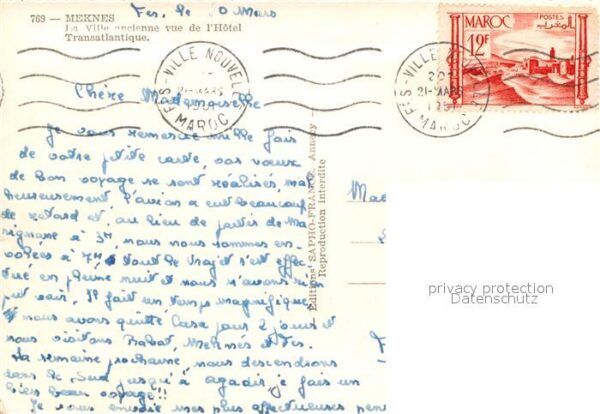 Fès. le 20 Mars
769 — MEKNES
La Ville ancienne vue de l'Hôtel
Transatlantique.
MAROC
POSTES
المغرب
12F
FES-VILLE NOUVELLE
21-MARS
MAROC
FES-VILLE NOUVELLE
21-MARS
1951
MAROC
Chère Mademoiselle
Je vous remercie mille fois
de votre petite carte, vos vœux
de bon voyage se sont réalisés, mal
heureusement l'avion a eut beaucoup
de retard et, au lieu de partir de Ma
rignane à 3H, nous nous sommes en-
volées à 7H, tout le trajet s'est effec
tué en pleine nuit et nous n'avons rien
put voir, Il fait un temps magnifique
et nous avons quitté Casa pour 2 jours et
nous visitons Rabat, Meknès et Fès.
La semaine prochaine, nous descendons
dans le Sud jusqu'à Agadir, je fais un
bien beau voyage!!
Je vous envoie mes plus affectueuses pen
Editions SAPHO-FRANCE, Annecy —
Reproduction Interdite
Mad
privacy protection
Datenschutz